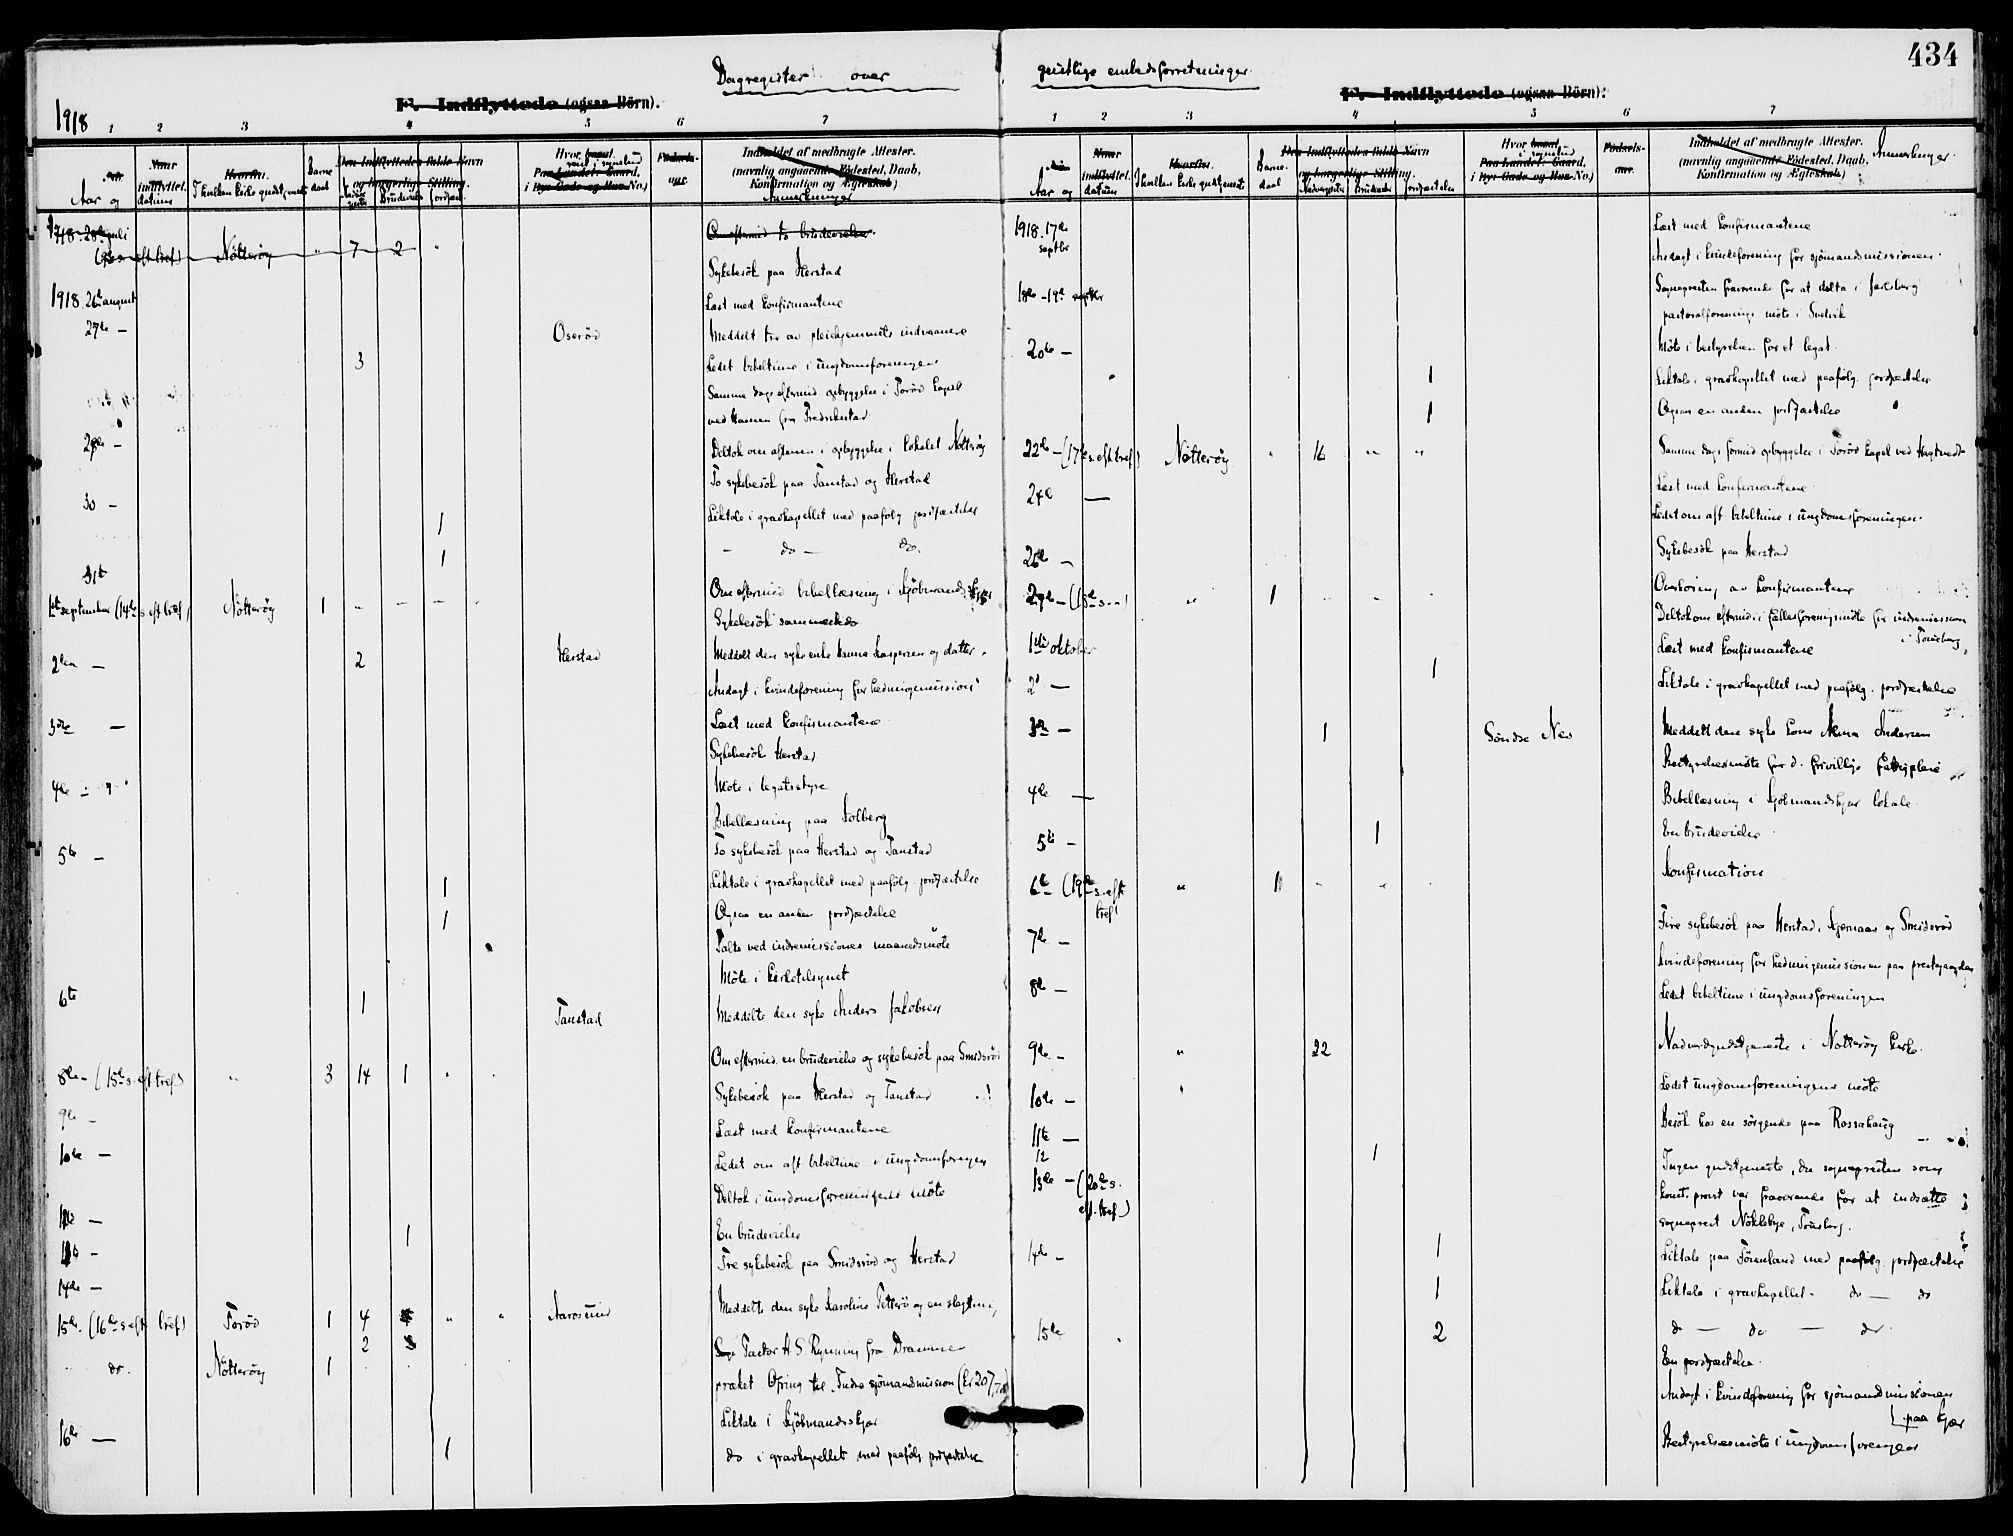 434
Dagregister over geistlige embedsforretninger
F. Indflyttede (ogsaa Börn).
1918 1 2 3 4 5 6 7
Aar og datum
I hvilken kirke gudstjeneste
Barne daab
Bruderie
Jordfæst.
Anmerkninger
1918 28de juli Nötteröy " 7 2 "
Om eftermid to brudevielser
Sykebesök paa Herstad
1918 26de august Læst med konfirmantene
27de — Oseröd Meddelt tre av pleiehjemmets indvaanere
3 Ledet bibeltime i ungdomsforeningen
Samme dags eftermid opbyggelse i Toröd kapel
ved Hansen fra Fredrikstad
28de — Deltok om aftenen i opbyggelse i lokalet Nötteröy
To sykebesök paa Tanstad og Herstad
30 — Liktale i gravkapellet med paafölg. jordfæstelse 1
— do — do. 1
31te
1ste september (14de s. eft tref) Nötteröy 1 - - - -
Om eftermid bibellæsning i Kjöbmandskjær
Sykebesök sammesteds
2den — 2 Herstad Meddelt den syke enke Hanna Kaspersen og datter.
Andagt i kvindeforening for hedningemission
3die — Læst med konfirmantene
Sykebesök Herstad
4de — Möte i legatstyre
Bibellæsning paa Solberg
5te — To sykebesök paa Herstad og Tanstad
1 Liktale i gravkapellet med paafölg. jordfæstelse
1 Ogsaa en anden jordfæstelse
Talte ved indremissionens maanedsmöte
Möte i kirketilsynet
6te 1 Tanstad Meddelte den syke Anders Jakobsen
8de - (15de s. eft tref) " 3 14 1 " Om eftermid. en brudevielse og sykebesök paa Smidsröd
9de — Sykebesök paa Herstad og Tanstad
Læst med konfirmantene
10de — Ledet om aft bibeltime i ungdomsforeningen
Deltok i ungdomsforeningens möte
En brudevielse 1
Tre sykebesök paa Smidsröd og Herstad
14de —
15de. (16de s eft tref) Toröd 1 4 " " Aarösund Meddelte den syke Karoline Tetterö og en slegtning
2
do. Nötteröy 1
Pastor H. S. Rynning fra Drammen
præket. Ofring til Indre sjömandsmission (kr 207,70)
Liktale i Kjöbmandskjær
16de — 1 do i gravkapellet med paafölg jordfæstelse
F. Indflyttede (ogsaa Börn).
1 2 3 4 5 6 7
Aar og datum
I hvilken kirke gudstjeneste
Barne-daab
Nadvergjester Brudevielse Jordfæstelse
Anmerkninger.
1918. 17de septbr Læst med konfirmantene
Andagt i kvindeforening for sjömandsmissionen.
18de - 19de septbr Sognepresten fraværende for at delta i Jarlsberg
pastoralforenings möte i Snelvik
20de — Möte i bestyrelsen for et legat.
1 Liktale i gravkapellet med paafölg. jordfæstelse
1 Ogsaa en anden jordfæstelse
22de — (17de s. eft tref) Nötteröy " 16 " " Samme dags formid opbyggelse i Toröd kapel ved Hagtvedt
24de — Læst med konfirmantene
Ledet om aft. bibeltime i ungdomsforeningen.
26de — Sykebesök paa Herstad
29de — (18de s. —) " 1 - - - Overhöring av konfirmantene
Deltok om eftermid. i fællesforeningsmöte for indremission
i Tönsberg.
1ste oktober Læst med konfirmantene
2d — 1 Liktale i gravkapellet med paafölg. jordfæstelse
3de — 1 Söndre Nes Meddelt den syke kone Anna Andersen
Bestyrelsesmöte for d. frivillige fattigpleie
4de — Bibellæsning i Kjöbmandskjær lokale.
5te — 1 En brudevielse
6te (19de s. eft tref) " 11 - - Konfirmation
7de — Fire sykebesök paa Herstad, Kjernaas og Smidsröd
Kvindeforening for hedningemissionen paa prestegaarden
8de — Ledet bibeltime i ungdomsforeningen
9de — " 22 Nadverdgudstjeneste i Nötteröy kirke.
10de — Ledet ungdomsforeningens möte
11te — Besök hos en sörgende paa Rossahaug
12 1
13de — (20de s. eft. tref) Ingen gudstjeneste, da sognepresten som
konst. prost var fraværende for at indsætte
sogneprest Nöklebye, Tönsberg.
14de — 1 Liktale paa Föienland med paafölg. jordfæstelse
1 Liktale i gravkapellet - do — do
15de 2 do — do — do.
En jordfæstelse.
Andagt i kvindeforening for sjömandsmissionen
paa Kjær
Bestyrelsesmöte i ungdomsforeningen